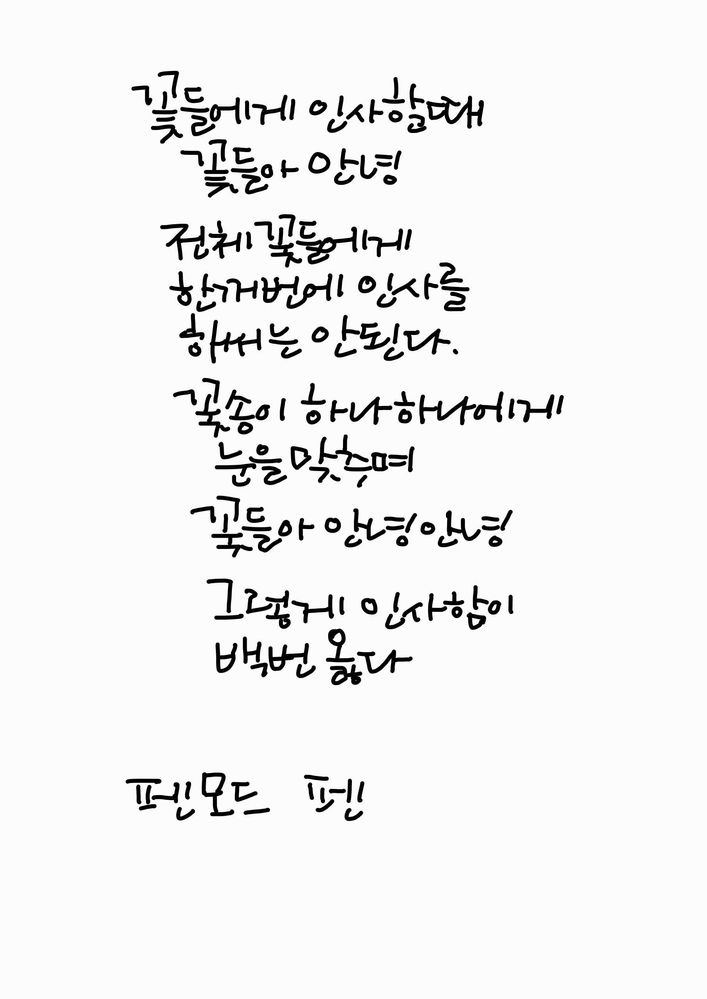 꽃들에게 인사할때
꽃들아 안녕
전체 꽃들에게
한꺼번에 인사를
해써는 안된다.
꽃송이 하나하나에게
눈을 맞추며
꽃들아 안녕 안녕
그렇게 인사함이
백번 옳다
펜모드 펜